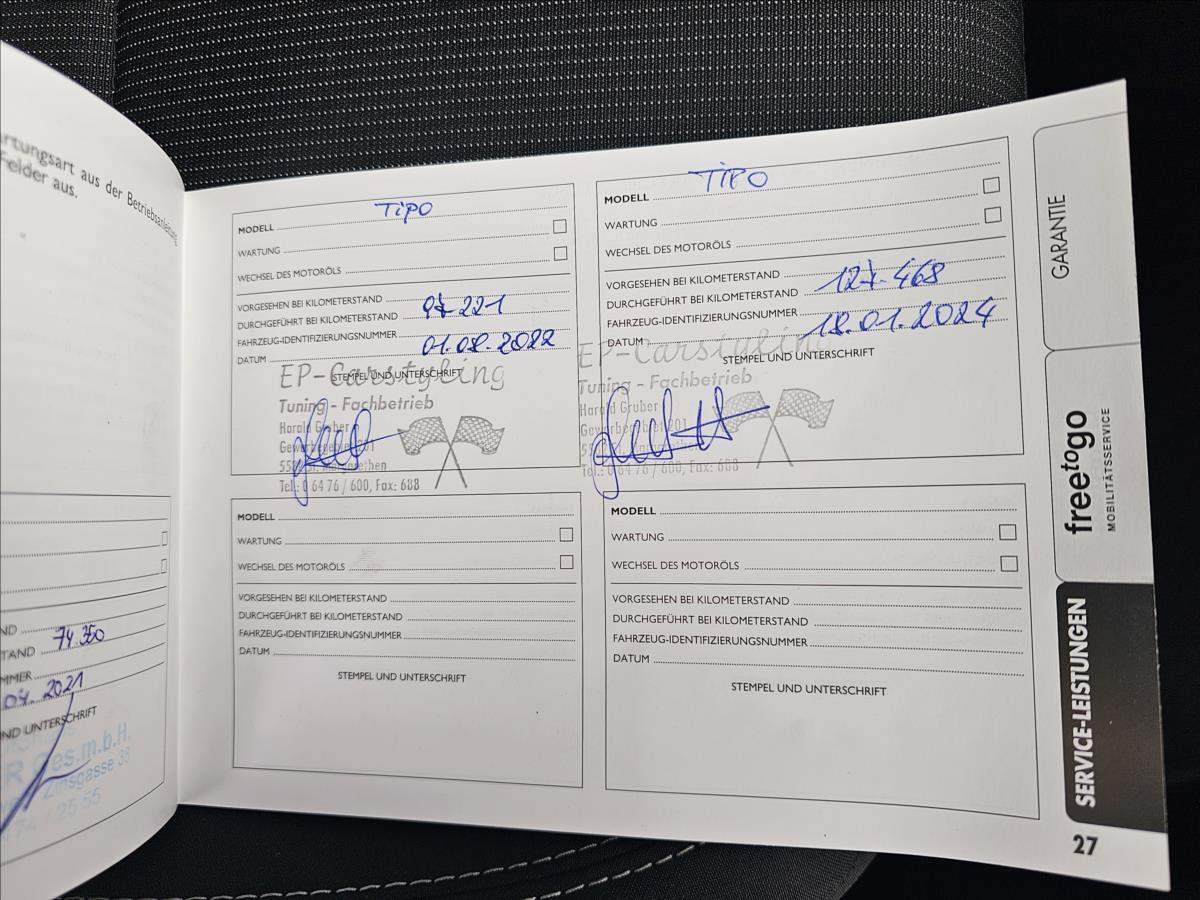 rtungsart aus der Betriebsanleitung
Felder aus.
ND
TAND 74.350
MMER
04. 2021
ND UNTERSCHRIFT
R Ges.m.b.H.
Zinsgasse 38
25 55
MODELL TIPO
WARTUNG
WECHSEL DES MOTORÖLS
VORGESEHEN BEI KILOMETERSTAND
DURCHGEFÜHRT BEI KILOMETERSTAND 97.221
FAHRZEUG-IDENTIFIZIERUNGSNUMMER
DATUM 01.08.2022
STEMPEL UND UNTERSCHRIFT
EP-Carstyling
Tuning - Fachbetrieb
Harald Gruber
Tel.: 0 64 76 / 600, Fax: 688
MODELL TIPO
WARTUNG
WECHSEL DES MOTORÖLS
VORGESEHEN BEI KILOMETERSTAND
DURCHGEFÜHRT BEI KILOMETERSTAND 127.468
FAHRZEUG-IDENTIFIZIERUNGSNUMMER
DATUM 18.01.2024
STEMPEL UND UNTERSCHRIFT
EP-Carstyling
Tuning - Fachbetrieb
Harald Gruber
Tel.: 0 64 76 / 600, Fax: 688
MODELL
WARTUNG
WECHSEL DES MOTORÖLS
VORGESEHEN BEI KILOMETERSTAND
DURCHGEFÜHRT BEI KILOMETERSTAND
FAHRZEUG-IDENTIFIZIERUNGSNUMMER
DATUM
STEMPEL UND UNTERSCHRIFT
MODELL
WARTUNG
WECHSEL DES MOTORÖLS
VORGESEHEN BEI KILOMETERSTAND
DURCHGEFÜHRT BEI KILOMETERSTAND
FAHRZEUG-IDENTIFIZIERUNGSNUMMER
DATUM
STEMPEL UND UNTERSCHRIFT
GARANTIE
freetogo
MOBILITÄTSSERVICE
SERVICE-LEISTUNGEN
27